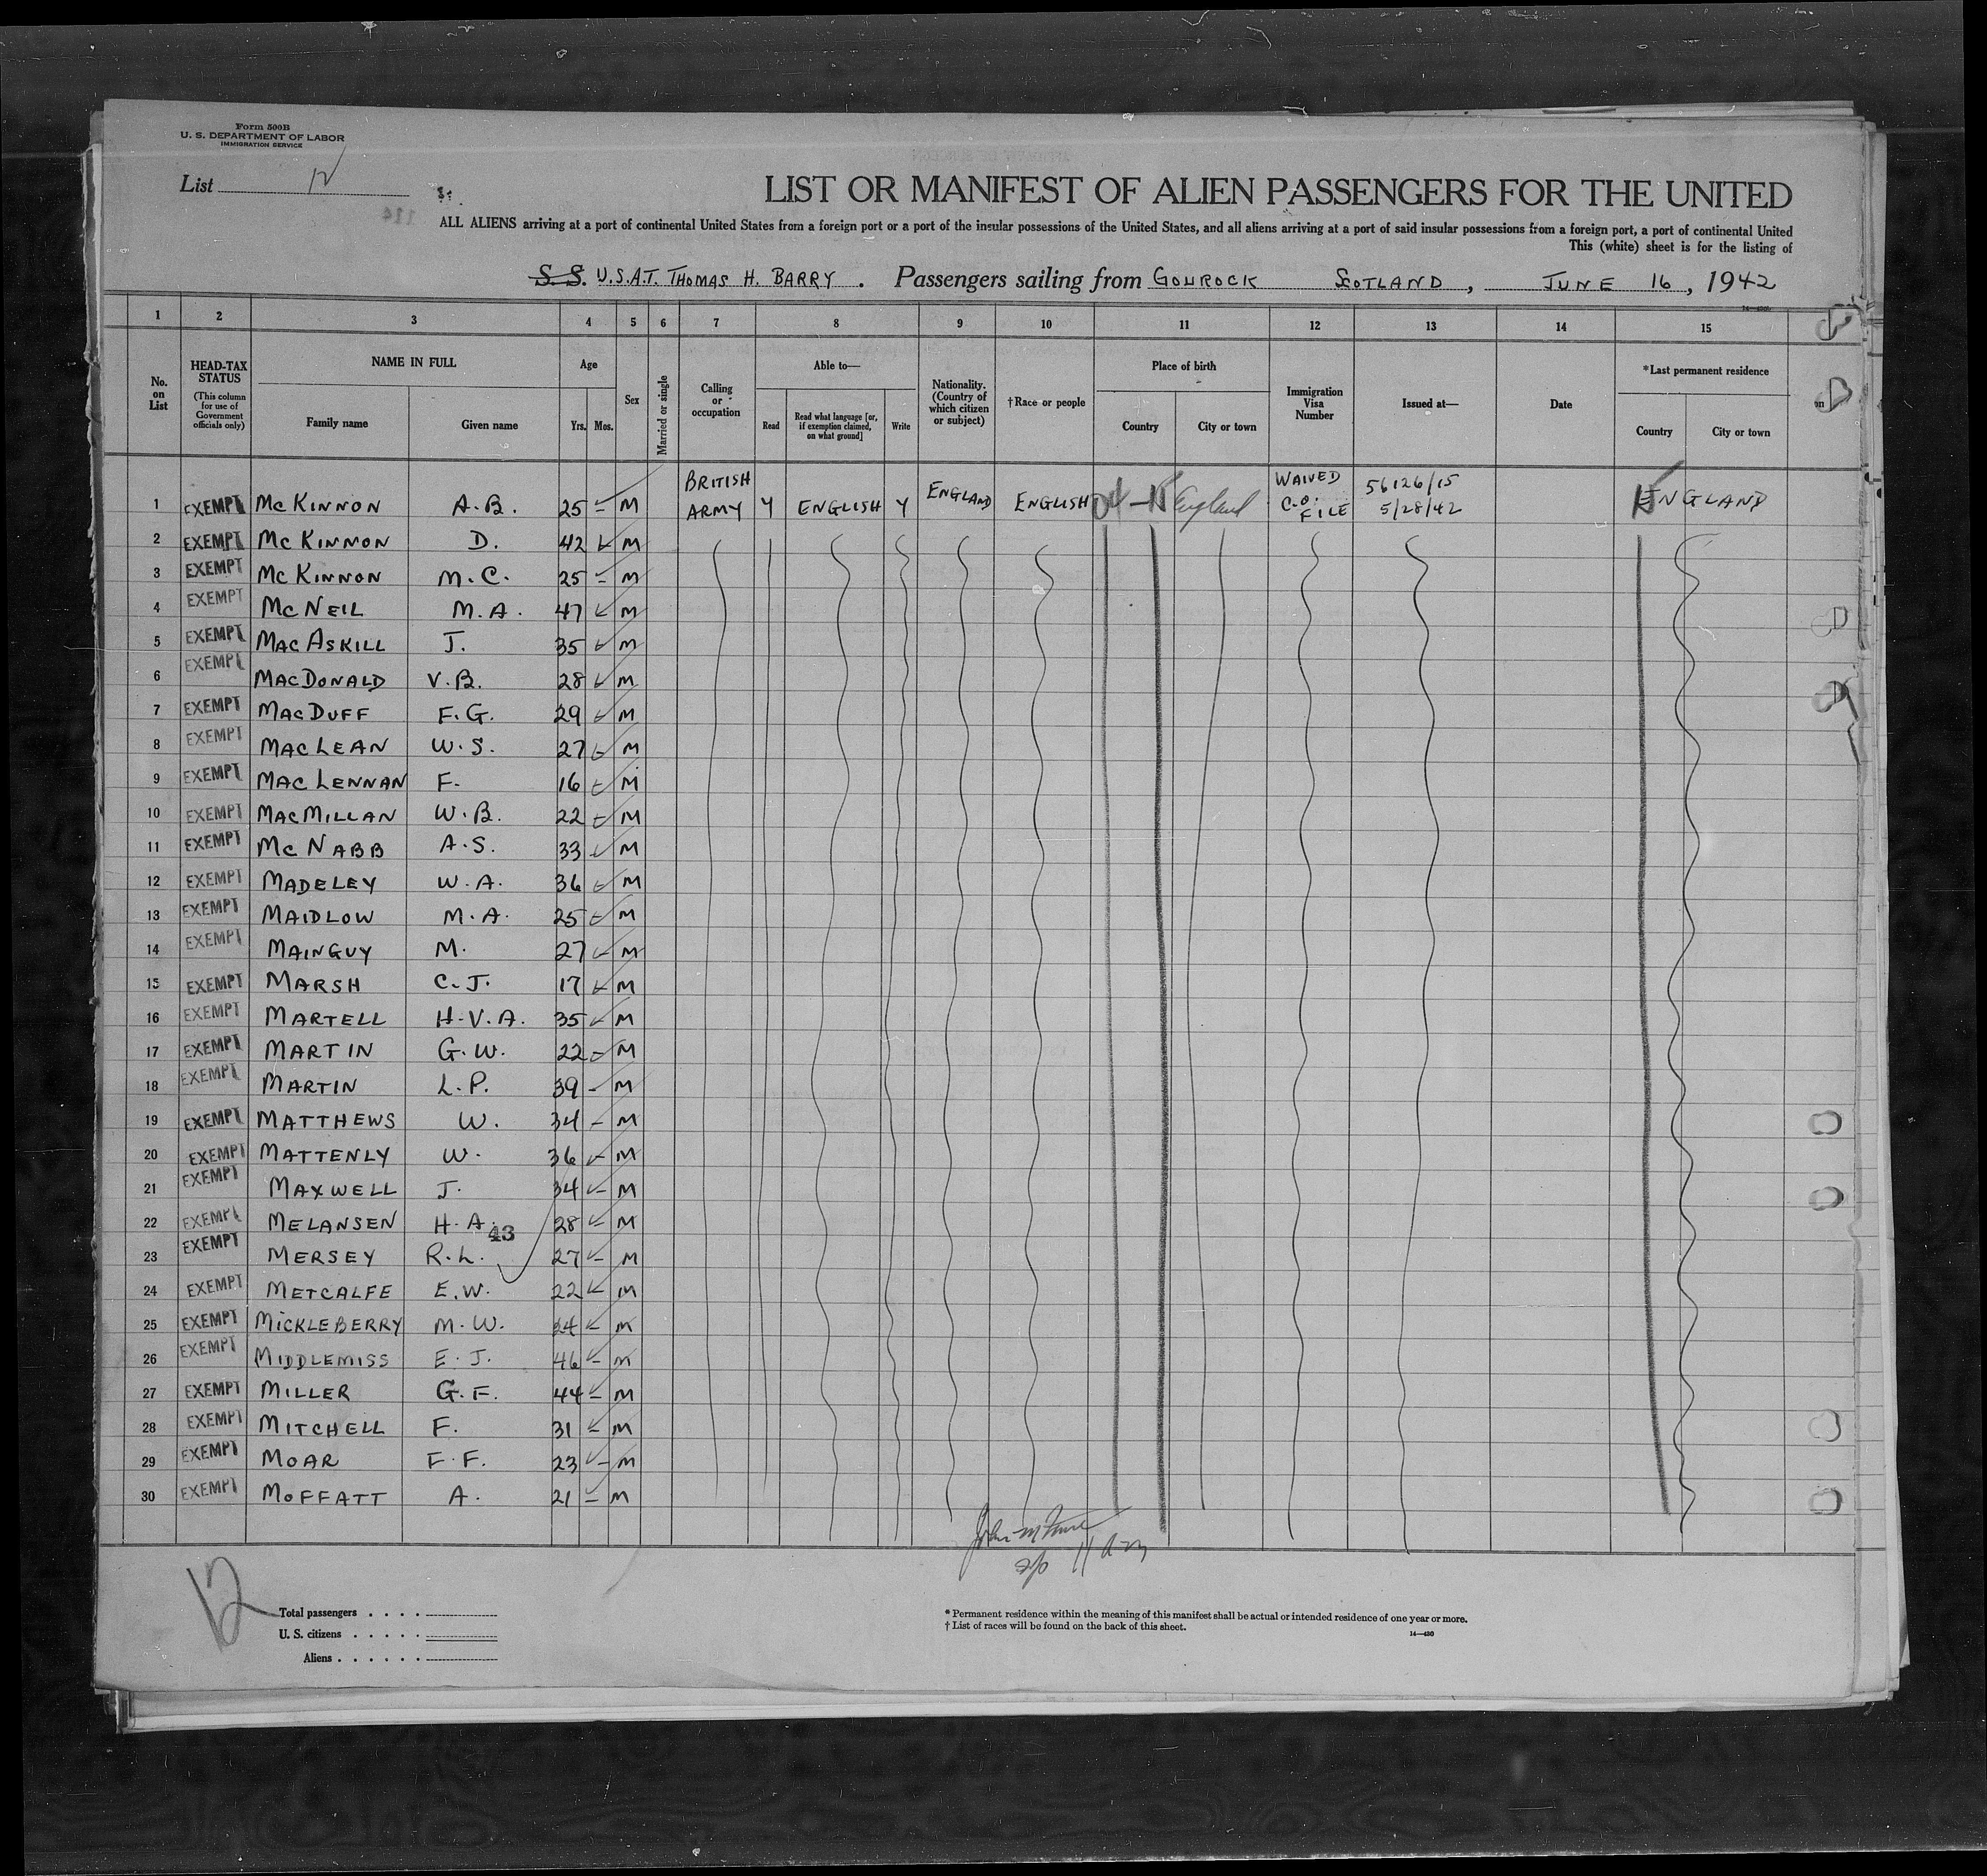 Form 500B
U. S. DEPARTMENT OF LABOR
IMMIGRATION SERVICE
List 12
LIST OR MANIFEST OF ALIEN PASSENGERS FOR THE UNITED
ALL ALIENS arriving at a port of continental United States from a foreign port or a port of the insular possessions of the United States, and all aliens arriving at a port of said insular possessions from a foreign port, a port of continental United
This (white) sheet is for the listing of
S. S. U.S.A.T. THOMAS H. BARRY . Passengers sailing from GOUROCK SCOTLAND , JUNE 16 , 1942
1 2 3 4 5 6 7 8 9 10 11 12 13 14 15
No. on List
HEAD-TAX STATUS (This column for use of Government officials only)
NAME IN FULL Family name Given name
Age Yrs. Mos.
Sex
Married or single
Calling or occupation
Able to— Read Read what language [or, if exemption claimed, on what ground] Write
Nationality. (Country of which citizen or subject)
†Race or people
Place of birth Country City or town
Immigration Visa Number
Issued at—
Date
*Last permanent residence Country City or town
1 EXEMPT McKINNON A.B. 25 M BRITISH ARMY Y ENGLISH Y ENGLAND ENGLISH England WAIVED C.O. FILE 56126/15 5/28/42 ENGLAND
2 EXEMPT McKINNON D. 42 M
3 EXEMPT McKINNON M.C. 25 M
4 EXEMPT McNEIL M.A. 47 M
5 EXEMPT MACASKILL J. 35 M
6 EXEMPT MACDONALD V.B. 28 M
7 EXEMPT MACDUFF F.G. 29 M
8 EXEMPT MACLEAN W.S. 27 M
9 EXEMPT MACLENNAN F. 16 M
10 EXEMPT MACMILLAN W.B. 22 M
11 EXEMPT McNABB A.S. 33 M
12 EXEMPT MADELEY W.A. 36 M
13 EXEMPT MAIDLOW M.A. 25 M
14 EXEMPT MAINGUY M. 27 M
15 EXEMPT MARSH C.J. 17 M
16 EXEMPT MARTELL H.V.A. 35 M
17 EXEMPT MARTIN G.W. 22 M
18 EXEMPT MARTIN L.P. 39 M
19 EXEMPT MATTHEWS W. 34 M
20 EXEMPT MATTENLY W. 36 M
21 EXEMPT MAXWELL J. 34 M
22 EXEMPT MELANSEN H.A. 28 M
43
23 EXEMPT MERSEY R.L. 27 M
24 EXEMPT METCALFE E.W. 22 M
25 EXEMPT MICKLEBERRY M.W. 24 M
26 EXEMPT MIDDLEMISS E.J. 46 M
27 EXEMPT MILLER G.F. 44 M
28 EXEMPT MITCHELL F. 31 M
29 EXEMPT MOAR F.F. 23 M
30 EXEMPT MOFFATT A. 21 M
12
Total passengers
U. S. citizens
Aliens
* Permanent residence within the meaning of this manifest shall be actual or intended residence of one year or more.
† List of races will be found on the back of this sheet.
14—430